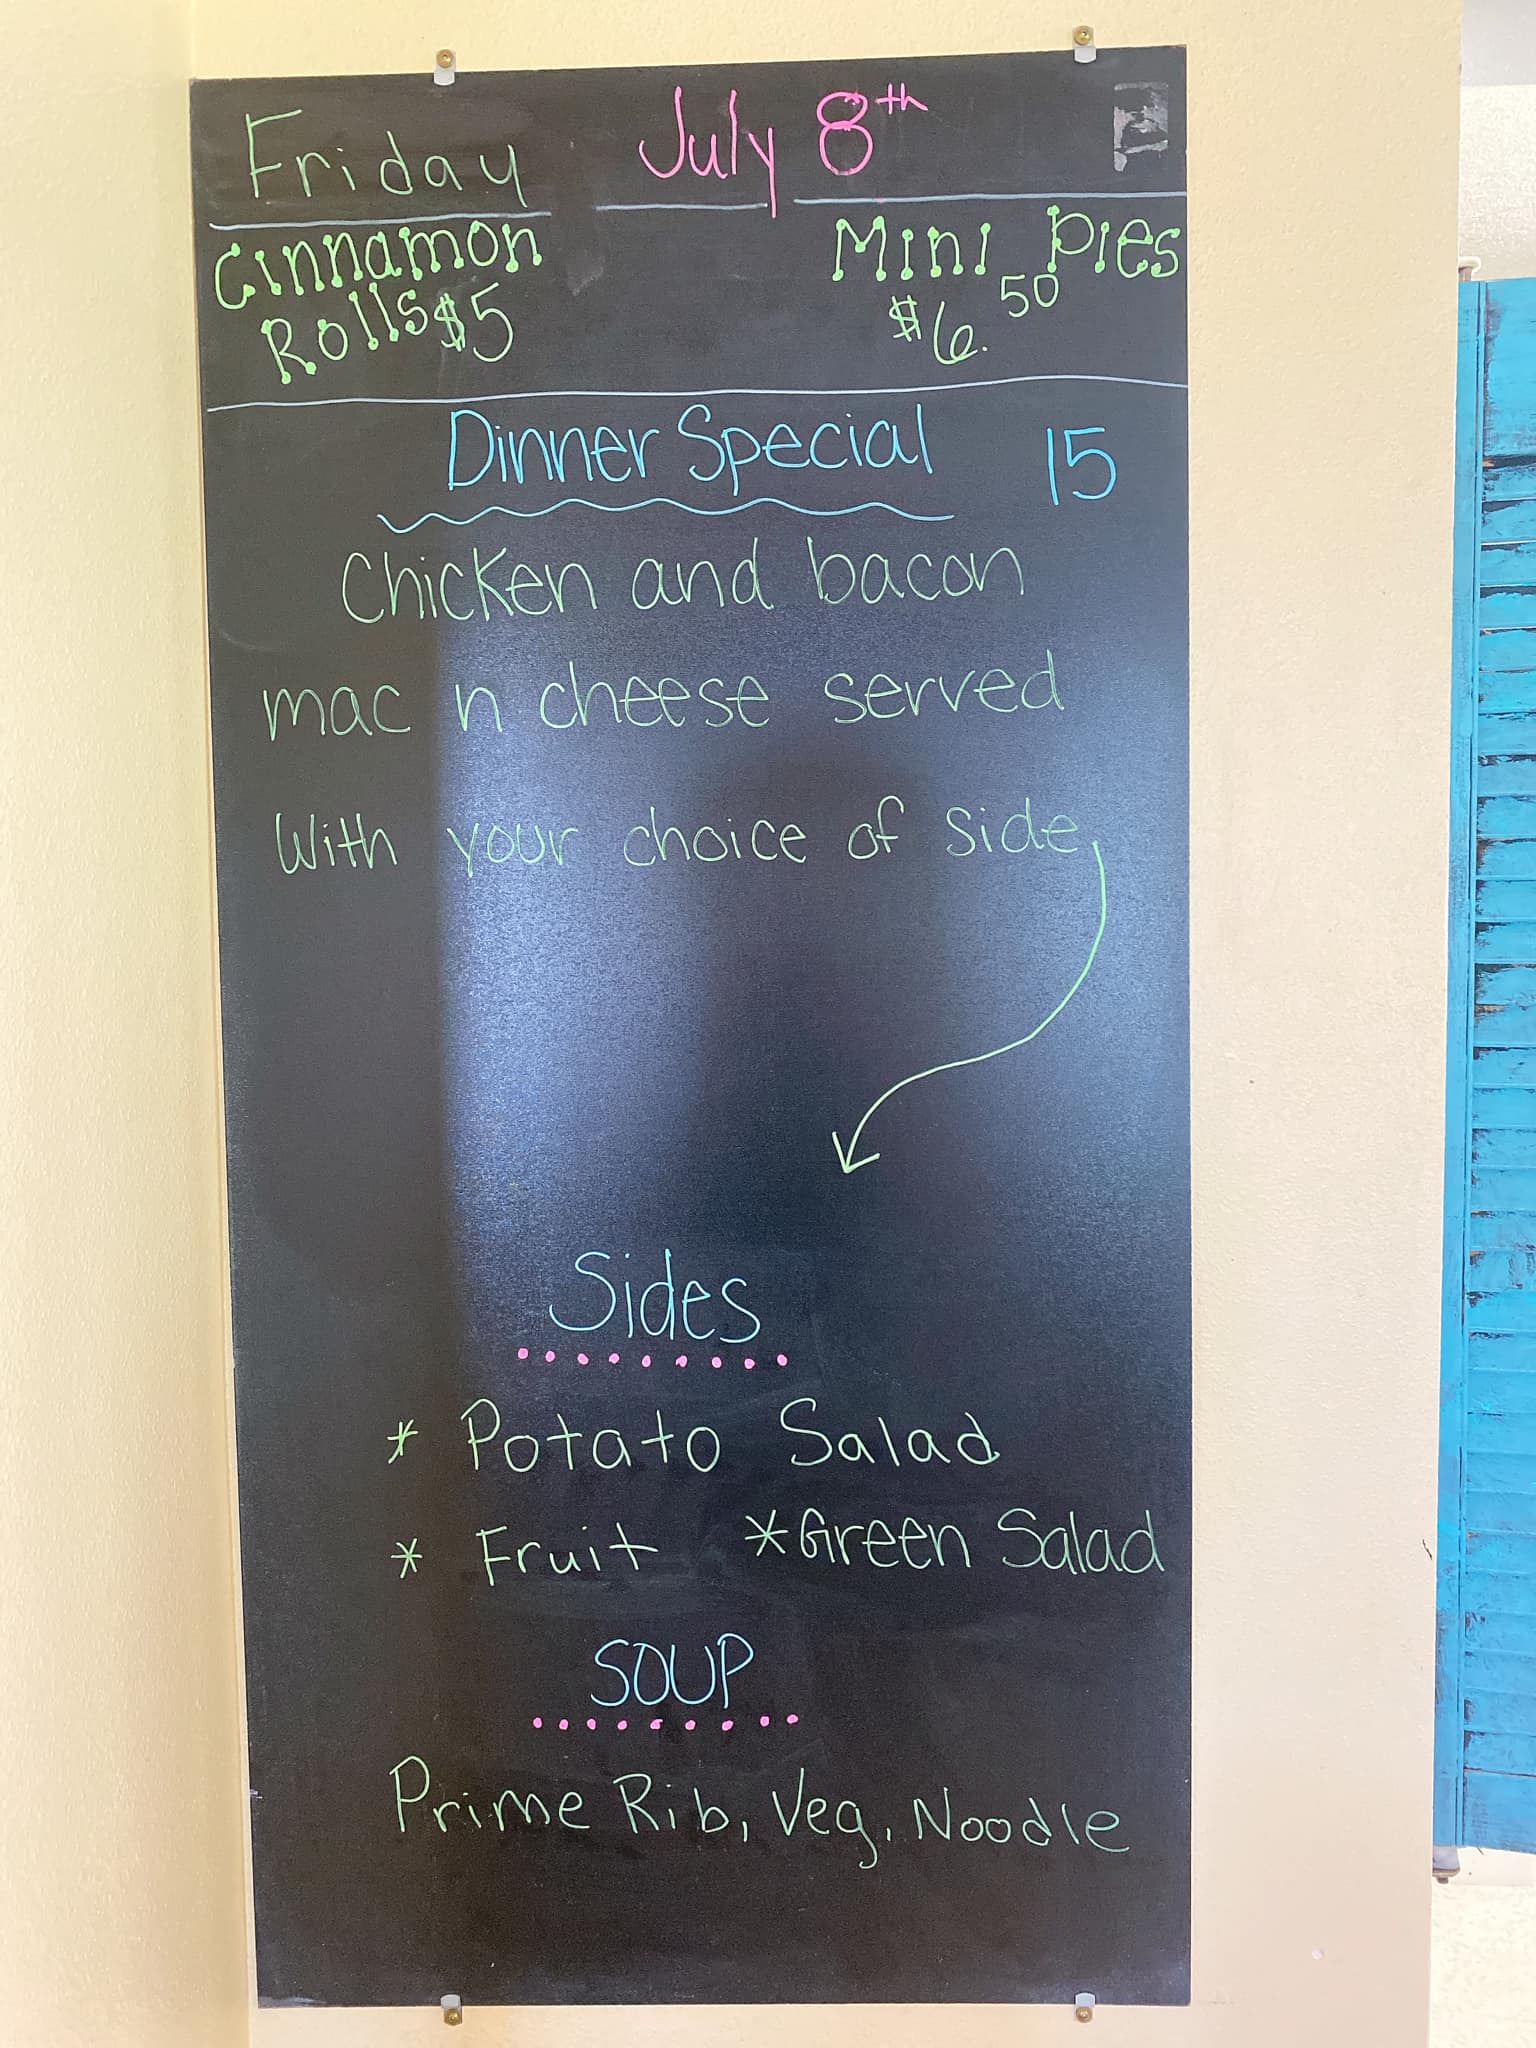 Friday July 8th
Cinnamon
Rolls $5
Mini Pies
$6.50
Dinner Special 15
Chicken and bacon
mac n cheese served
With your choice of side,
Sides
* Potato Salad
* Fruit *Green Salad
SOUP
Prime Rib, Veg, Noodle